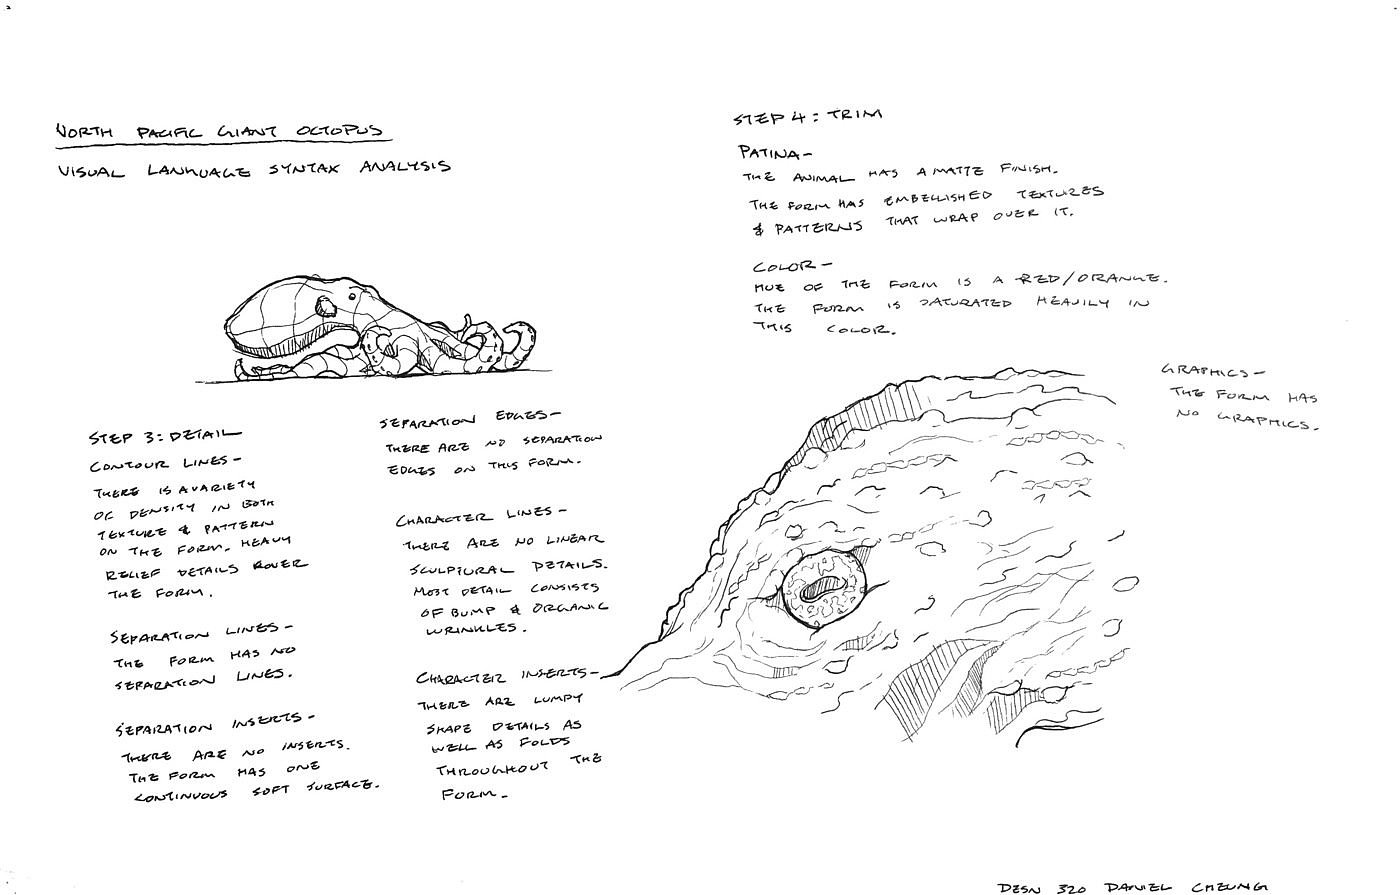 NORTH PACIFIC GIANT OCTOPUS
VISUAL LANGUAGE SYNTAX ANALYSIS
STEP 3: DETAIL
CONTOUR LINES-
THERE IS A VARIETY
OF DENSITY IN BOTH
TEXTURE & PATTERN
ON THE FORM. HEAVY
RELIEF DETAILS COVER
THE FORM.
SEPARATION LINES-
THE FORM HAS NO
SEPARATION LINES.
SEPARATION INSERTS-
THERE ARE NO INSERTS.
THE FORM HAS ONE
CONTINUOUS SOFT SURFACE.
SEPARATION EDGES-
THERE ARE NO SEPARATION
EDGES ON THIS FORM.
CHARACTER LINES-
THERE ARE NO LINEAR
SCULPTURAL DETAILS.
MOST DETAIL CONSISTS
OF BUMP & ORGANIC
WRINKLES.
CHARACTER INSERTS-
THERE ARE LUMPY
SHAPE DETAILS AS
WELL AS FOLDS
THROUGHOUT THE
FORM.
STEP 4: TRIM
PATINA-
THE ANIMAL HAS A MATTE FINISH.
THE FORM HAS EMBELLISHED TEXTURES
& PATTERNS THAT WRAP OVER IT.
COLOR-
HUE OF THE FORM IS A RED/ORANGE.
THE FORM IS SATURATED HEAVILY IN
THIS COLOR.
GRAPHICS-
THE FORM HAS
NO GRAPHICS.
DESN 320 DANIEL CHEUNG